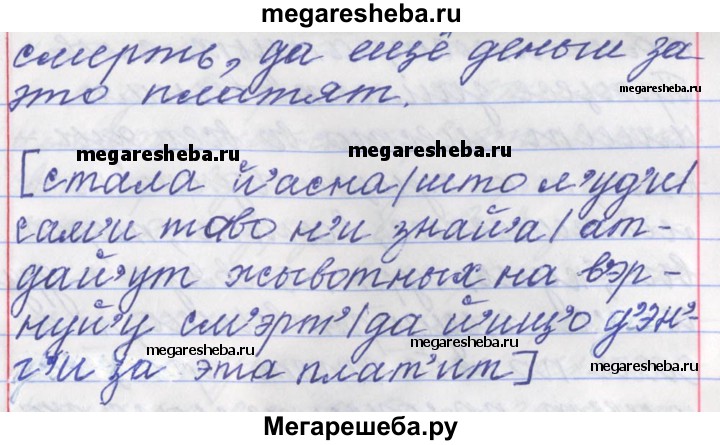 megaresheba.ru
смерть, да ещё деньги за
это платят.
megaresheba.ru
megaresheba.ru
megaresheba.ru
[стала й'асна/што л'уд'и/
сам'и таво н'и знай'а/ат-
дай'ут жывотных на в'эр-
нуй'у см'эрт'/да й'ищ'о д'эн'-
megaresheba.ru
megaresheba.ru
megaresheba.ru
г'и за эта плат'ит]
Мегарешеба.ру